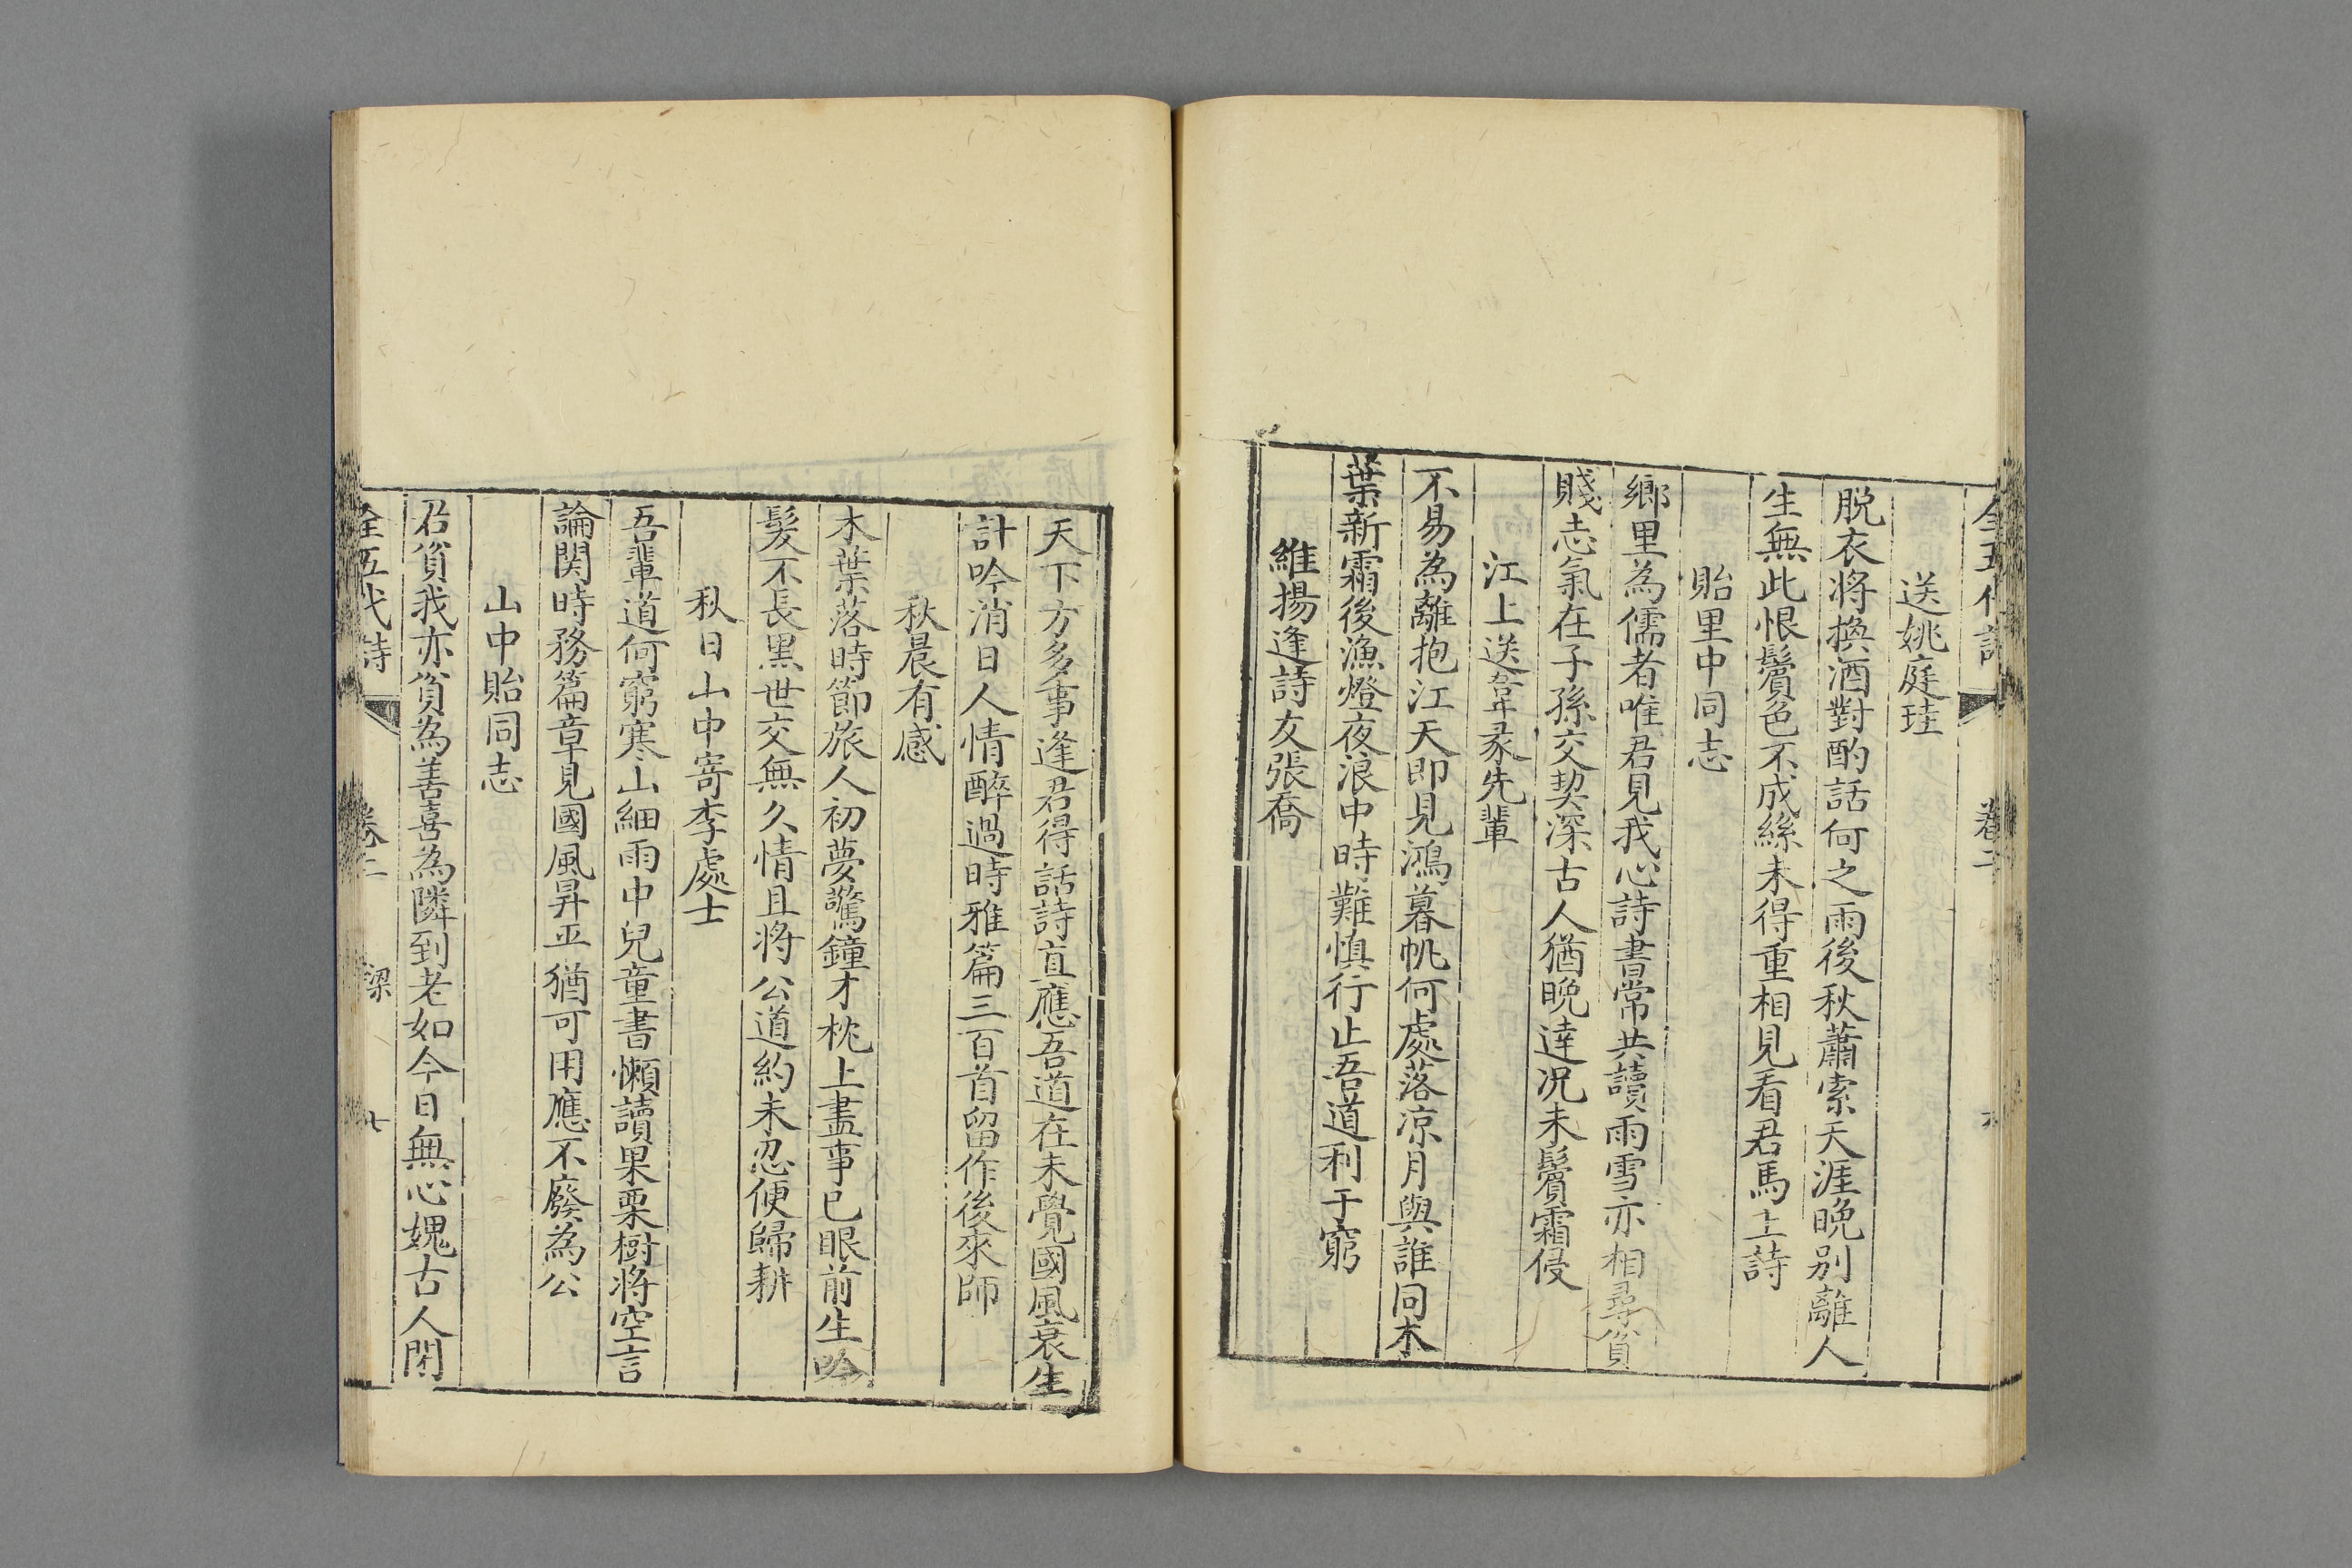 全五代詩 卷二
送姚庭珪
脱衣將換酒對酌話何之雨後秋蕭索天涯晚别離人
生無此恨鬢色不成絲未得重相見看君馬上詩
貽里中同志
鄉里為儒者唯君見我心詩書常共讀雨雪亦相尋貧
賤志氣在子孫交契深古人猶晚達况未鬢霜侵
江上送韋彖先輩
不易為離抱江天即見鴻暮帆何處落凉月與誰同木
葉新霜後漁燈夜浪中時難慎行止吾道利于窮
維揚逢詩友張喬
天下方多事逢君得話詩直應吾道在未覺國風衰生
計吟消日人情醉過時雅篇三百首留作後來師
秋晨有感
木葉落時節旅人初夢驚鐘才枕上盡事已眼前生吟
髮不長黑世交無久情且將公道約未忍便歸耕
秋日山中寄李處士
吾輩道何窮寒山細雨中兒童書懶讀果栗樹將空言
論関時務篇章見國風昇平猶可用應不廢為公
山中貽同志
君貧我亦貧為善喜為隣到老如今日無心媿古人閉
全五代詩 卷二 梁 七